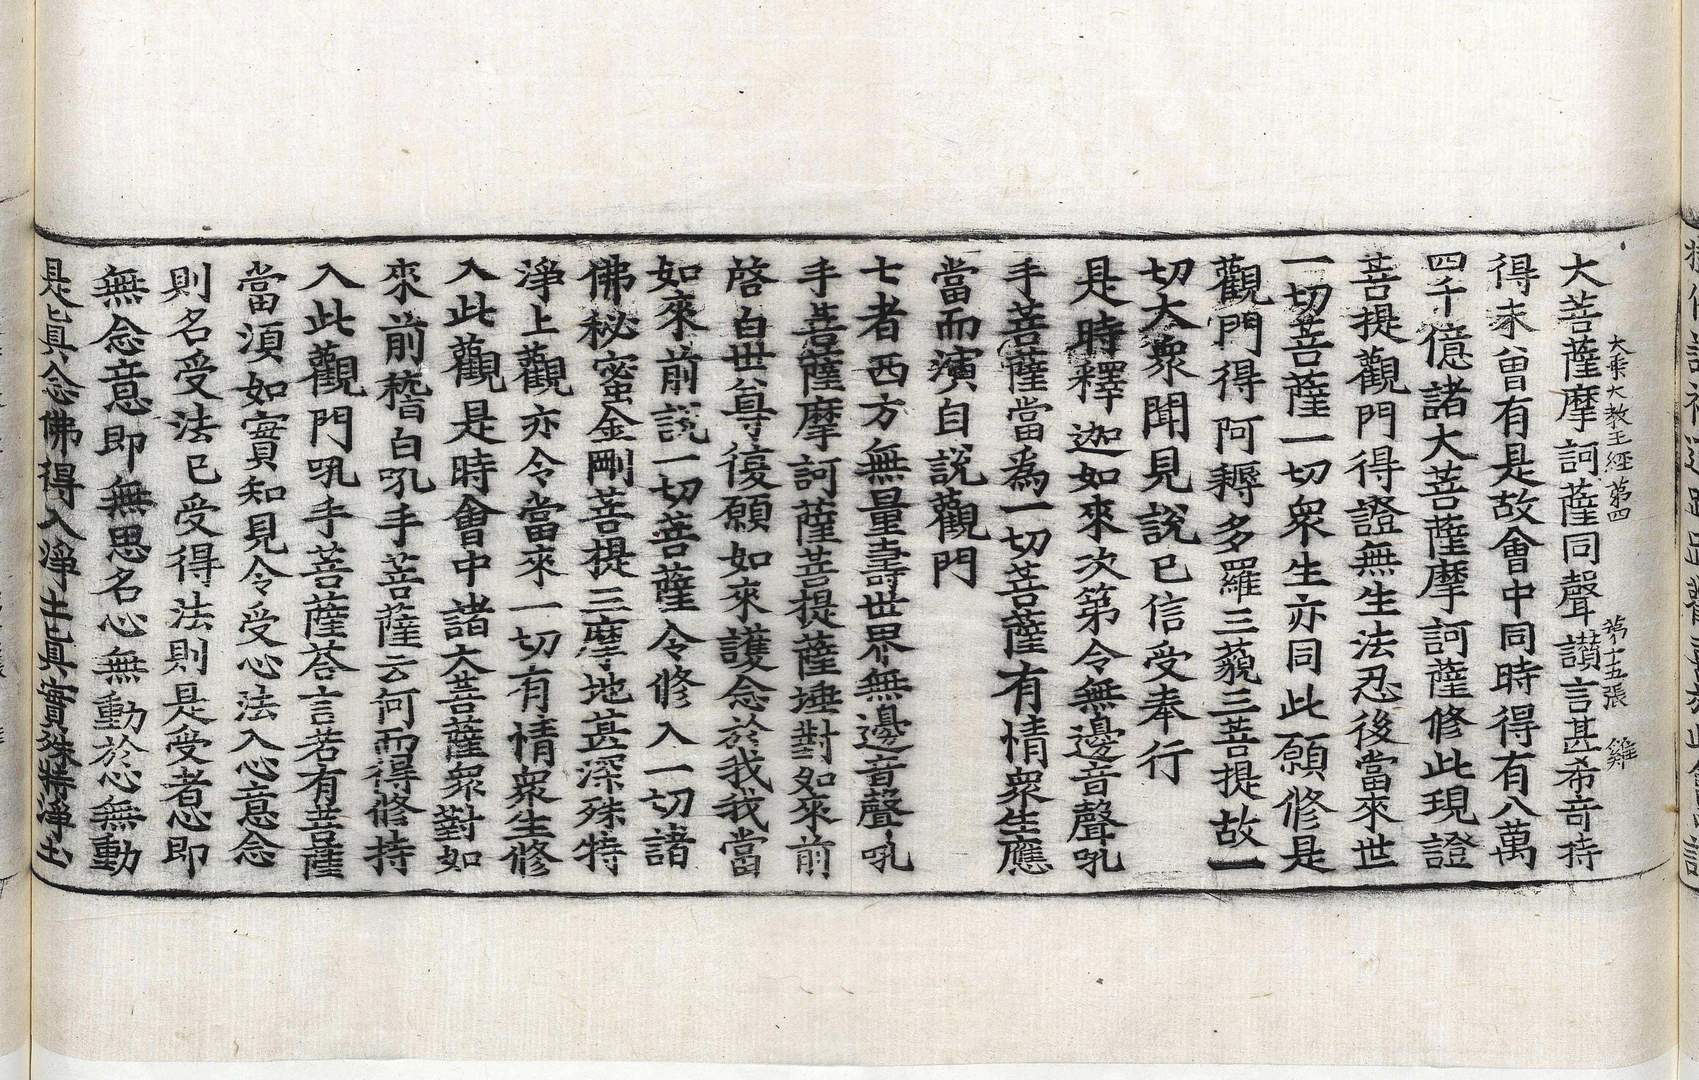 大乗大教王經第四 第十五張 雞
大菩薩摩訶薩同聲讃言甚希竒持
得未曾有是故會中同時得有八萬
四千億諸大菩薩摩訶薩修此現證
菩提觀門得證無生法忍後當來世
一切菩薩一切衆生亦同此願修是
觀門得阿耨多羅三藐三菩提故一
切大衆聞見說已信受奉行
是時釋迦如來次第令無邊音聲吼
手菩薩當爲一切菩薩有情衆生應
當而演自說觀門
七者西方無量壽世界無邊音聲吼
手菩薩摩訶薩菩提薩埵對如來前
啓白世尊復願如來護念於我我當
如來前說一切菩薩令修入一切諸
佛秘蜜金剛菩提三摩地甚深殊特
淨上觀亦令當來一切有情衆生修
入此觀是時會中諸大菩薩衆對如
來前稽白吼手菩薩云何而得修持
入此觀門吼手菩薩荅言若有菩薩
當須如實知見令受心法入心意念
則名受法已受得法則是受者心即
無念意即無思名心無動於心無動
是眞念佛得入淨土眞實殊特淨土